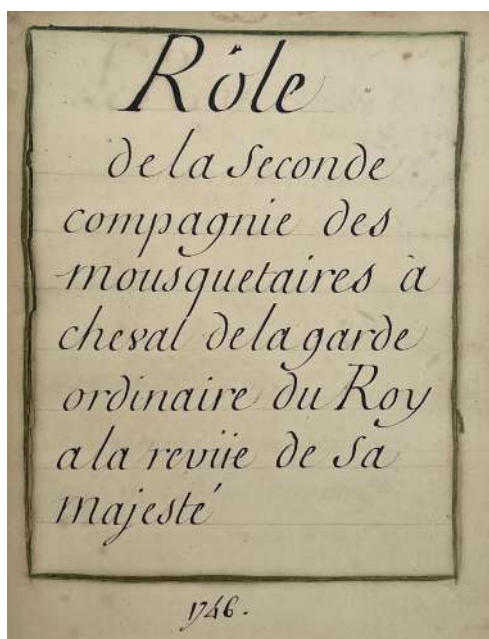 Rôle
de la Seconde
compagnie des
mousquetaires à
cheval de la garde
ordinaire du Roy
a la revüe de Sa
majesté
1746.